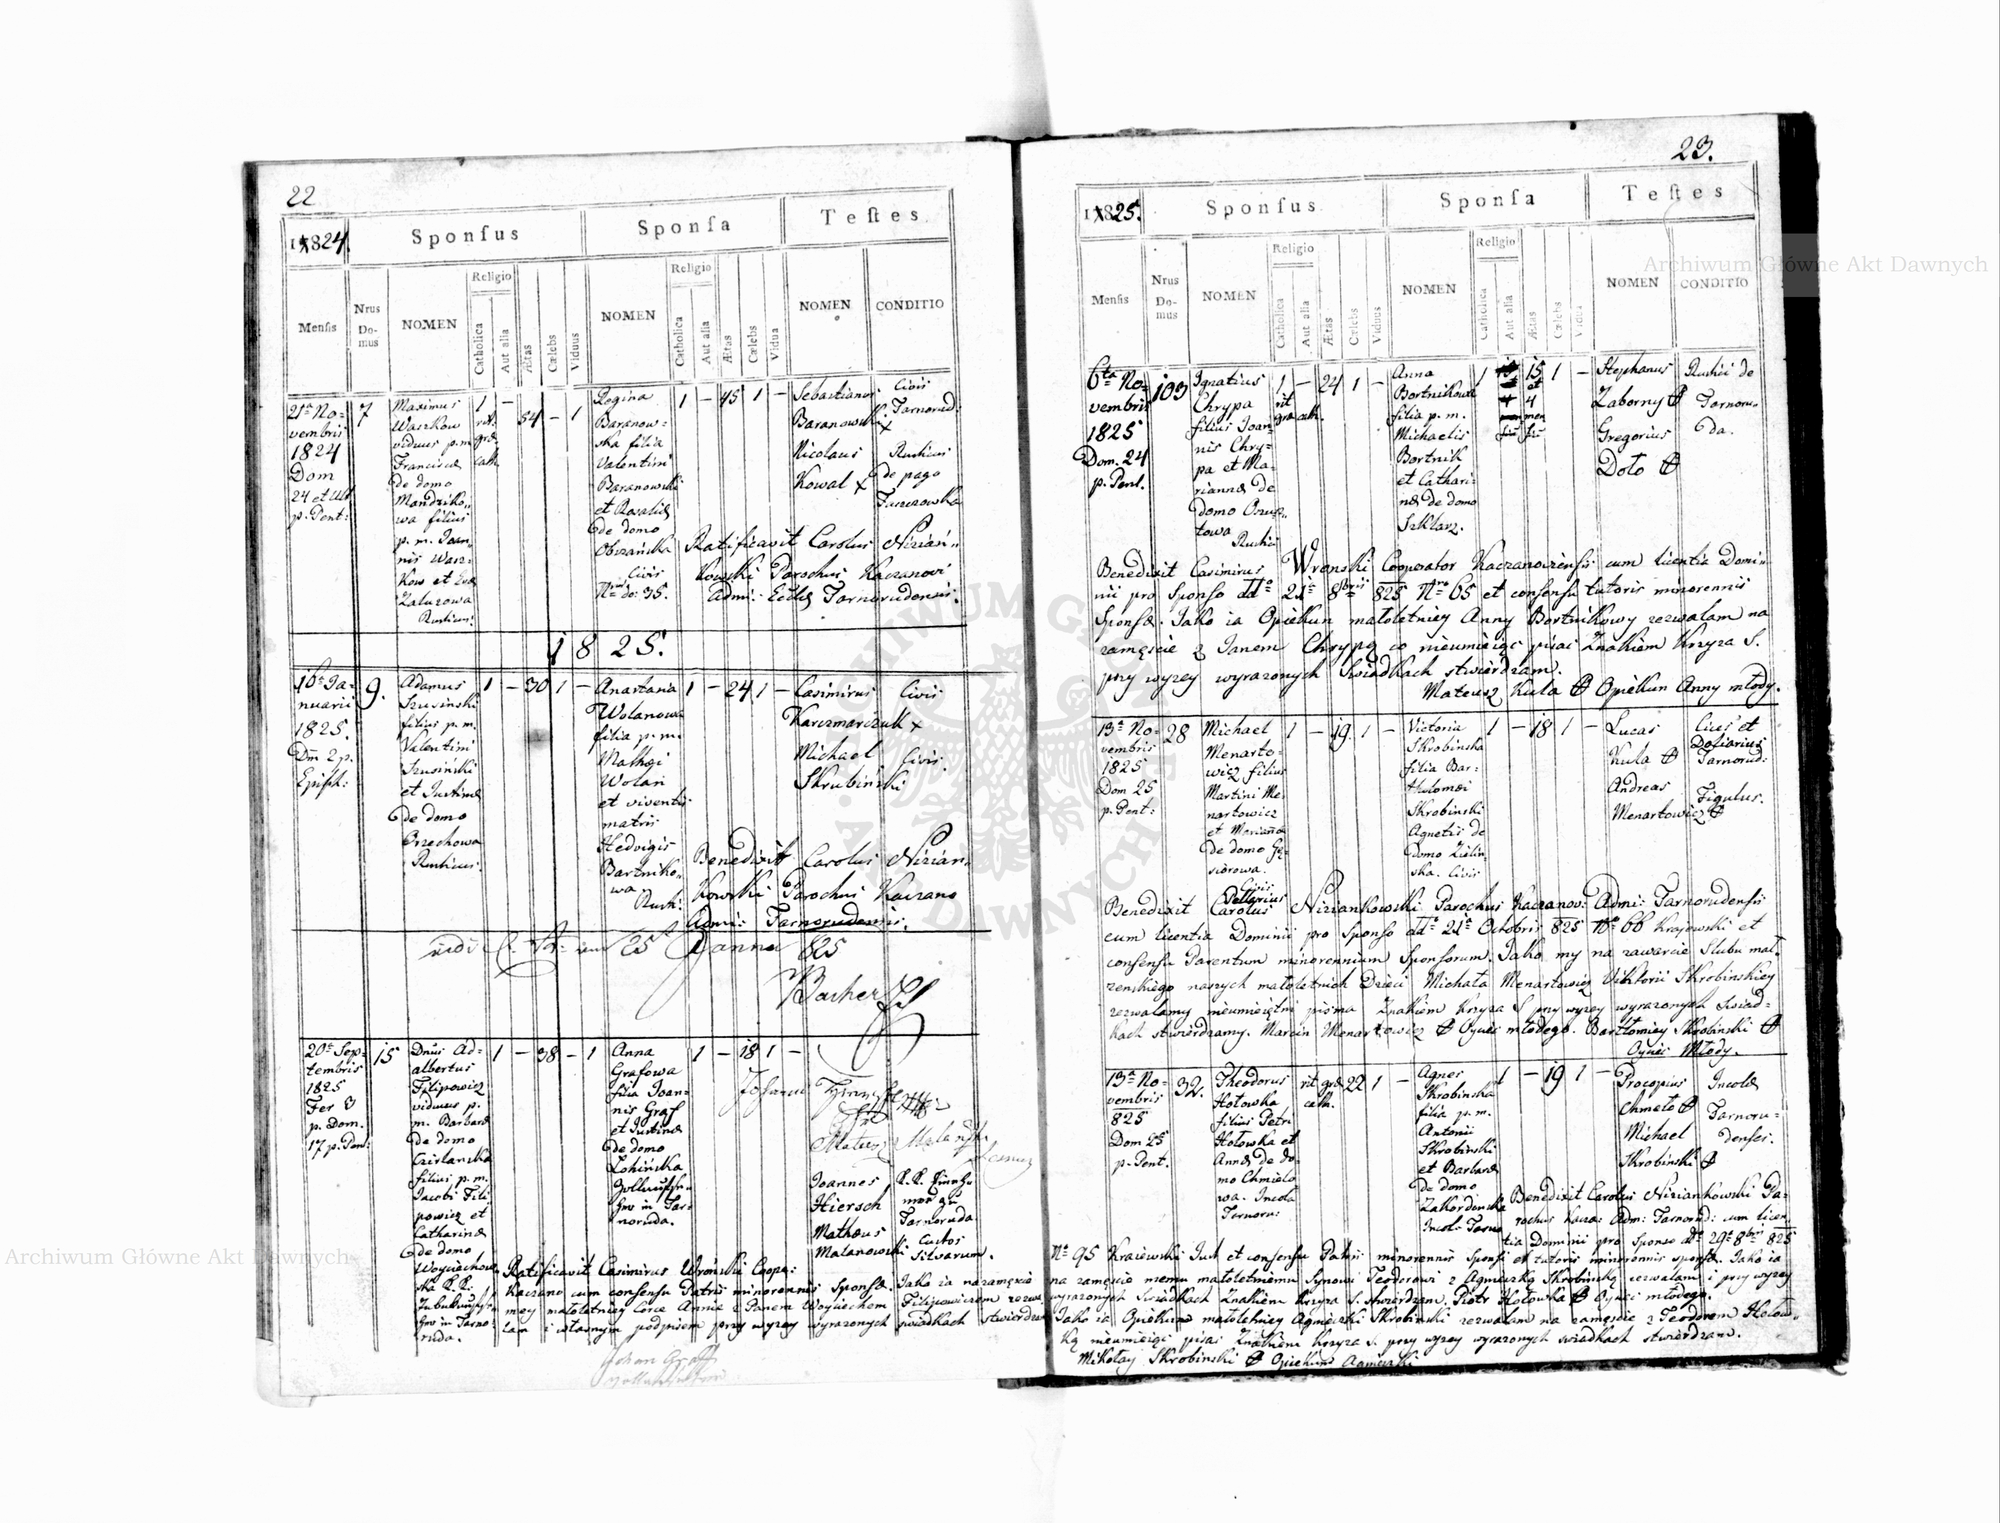 22
1824.
Sponsus
Sponsa
Testes
Mensis
Nrus Domus
NOMEN
Religio
Catholica
Aut alia
Ætas
Cælebs
Viduus
NOMEN
Religio
Catholica
Aut alia
Ætas
Cælebs
Vidua
NOMEN
CONDITIO
21a No-
vembris
1824
Dom
24 et Ult
p. Pent:
7
Maximus
Waszkow
viduus p.m.
Francisca
de domo
Mandziko-
wa filius
p. m. Joan-
nis Wasz-
kow et Eva
Zaluzowa
Rusticus
1
rit.
græ
cath.
–
54
–
1
Regina
Baranow-
ska filia
Valentini
Baranowski
et Rosaliæ
de domo
Obrzańska
Civis
Nro do: 35.
1
–
45
1
–
Sebastianus
Baranowski
x
Nicolaus
Kowal x
Civis
Tarnorud:
Rusticus
de pago
Ratificavit Carolus Nizian-
kowski Parochus Kaczanovi
Admi: Eccl. Tarnorudensis.
1825.
16a Ja-
nuarii
1825.
Dm 2 p.
Epiph:
9.
Adamus
Szusinski
filius p.m.
Valentini
Szusinski
et Justinæ
de domo
Orzechowa
Rusticus.
1
–
30
1
–
Anastasia
Wolanowa
filia p. m.
Mathæi
Wolan
et viventis
matris
Hedvigis
Bartniko-
wa
Rust:
1
–
24
1
–
Casimirus
Karczmarczuk x
Michael
Skrubinski
Civis
Civis.
Benedixit Carolus Nizian-
kowski Parochus Kaczano
Admi: Tarnorudensis.
825
20a Sep-
tembris
1825
Fer 3
p. Dom.
17 p. Pent:
15
Dnus Ad-
albertus
Filipowicz
viduus p.
m. Barbara
de domo
filius p.m.
Jacobi Fili
powicz et
Catharinæ
de domo
1
–
38
–
1
Anna
Grafowa
filia Joan-
nis Graf
et Justinæ
de domo
Lohińska
in Tar-
noruda.
1
–
18
1
–
Joannes
Hiersch
Mathæus
Malanowski
Tarnoruda
Custos
Silvarum.
Ratificavit Casimirus Wroński Coope:
Kaczano cum consensu Patris minorennis Sponsæ. Jako ia na zamęscie
mey małoletniey Corce Annie z Panem Woyciechem Filipowiczem zezwa
lam i własnym podpisem przy wyzey wyrazonych swiadkach stwierdzam
Johan Graff
23.
1825.
Sponsus
Sponsa
Testes
Mensis
Nrus Domus
NOMEN
Religio
Catholica
Aut alia
Ætas
Cælebs
Viduus
NOMEN
Religio
Catholica
Aut alia
Ætas
Cælebs
Vidua
NOMEN
CONDITIO
6ta No-
vembris
1825
Dom. 24
p. Pent.
103
Ignatius
Chrypa
filius Joan-
nis Chry-
pa et Ma-
rianna de
domo
Rustici
1
rit
græ cath.
–
24
1
–
Anna
Bortnikowa
filia p. m.
Michaelis
Bortnik
et Cathari-
næ de domo
Szklarz.
1
15
et
4
men
1
–
Stephanus
Zaborny
Gregorius
Doło
Rustici de
Tarnoru-
da.
Benedixit Casimirus Wronski Cooperator Kaczanovicensis cum licentia Domi-
nii pro Sponso ddo 21a 8bris 825 Nro 65 et consensu tutoris minorennis
Sponsæ. Jako ia Opiekun małoletniey Anny Bortnikowy zezwalam na
zamęscie z Janem Chrypą co nieumieiąc pisać Znakiem Krzyza S.
przy wyzey wyrazonych Swiadkach stwierdzam.
Mateusz Kula Opiekun Anny młody.
13a No-
vembris
1825
Dom 25
p. Pent:
28
Michael
Menarto-
wicz filius
Martini Me-
nartowicz
et Marianæ
de domo Gę-
siorowa.
Civis
1
–
19.
1
–
Victoria
Skrobinska
filia Bar-
tholomei
Skrobinski
Agnetis de
domo Zielin-
ska. Civis
1
–
18
1
–
Lucas
Kula
Andreas
Menartowicz
Cives et
Tarnorud:
Figulus.
Benedixit Carolus Niziankowski Parochus Kaczanov: Admi: Tarnorudensis
cum licentia Dominii pro Sponso ddo 21a Octobris 825 No 66 Krajewski et
consensu Parentum minorennium Sponsorum. Jako my na zawarcie Slubu mał-
zenskiego naszych małoletnich Dzieci Michała Menartowicz Viktorii Skrobinskiey
zezwalamy nieumieiętni pisma Znakiem Krzyza S przy wyzey wyrazonych Swiad-
kach stwierdzamy. Marcin Menartowicz Oyciec młodego. Bartłomiey Skrobinski
Oyciec Młody.
13a No-
vembris
825
Dom 25
p. Pent.
32.
Theodorus
Hołowka
filius Petri
Hołowka et
Annæ de do-
mo Chmielo
wa. Incola
Tarnoru:
rit græ
cath.
22
1
–
Agnes
Skrobinska
filia p. m.
Antonii
Skrobinski
et Barbaræ
de domo
Zakordonska
1
–
19
1
–
Procopius
Chmelo
Michael
Skrobinski
Incolæ
Tarnoru-
denses.
Benedixit Carolus Niziankowski Pa-
rochus Kacza: Adm: Tarnorud: cum licen
tia Dominii pro Sponso ddo 29a 8bris 825
No 95 Kraiewski Just et consensu Patris minorennis Sponsi et tutoris minorennis sponsæ. Jako ia
na zamęscie memu małoletniemu Synowi Teodorowi z Agnieszką Skrobinską zezwalam i przy wyzey
wyrazonych Swiadkach Znakiem Krzyza S. stwierdzam. Piotr Hołowka Oyciec młodego.
Jako ia Opiekun małoletniey Agnieszki Skrobinski zezwalam na zamęscie z Teodorem Hołow-
ką nieumieiąc pisac Znakiem Krzyza S. przy wyzey wyrazonych swiadkach stwierdzam.
Mikołay Skrobinski Opiekun Agnieszki
Archiwum Główne Akt Dawnych
Archiwum Główne Akt Dawnych
ARCHIWUM GŁÓWNE AKT DAWNYCH